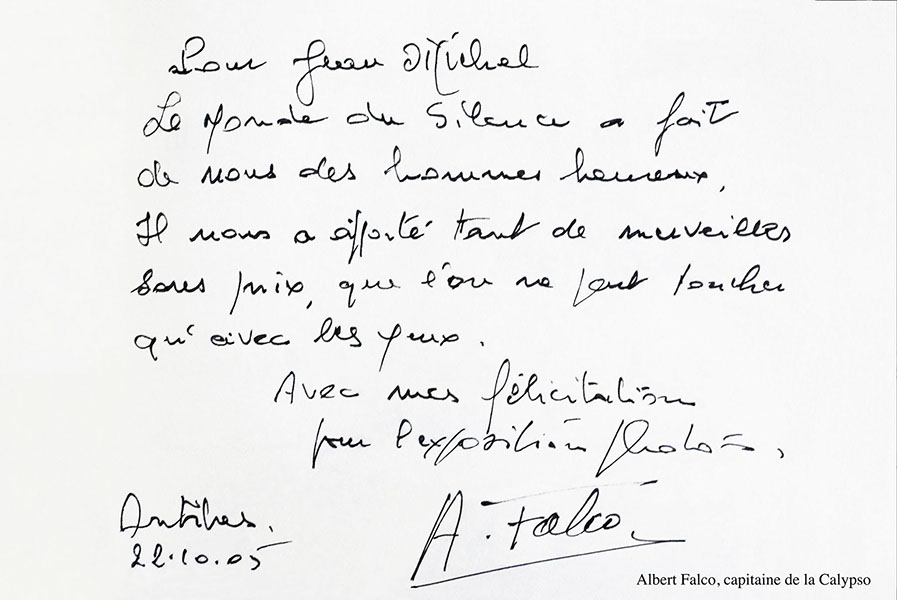 Pour Jean Michel
Le Monde du Silence a fait
de nous des hommes heureux,
Il nous a apporté tant de merveilles
sans prix, que l'on ne peut toucher
qu'avec les yeux.
Avec mes félicitations
pour l'exposition photos,
Antibes.
22.10.05
A. Falco.
Albert Falco, capitaine de la Calypso